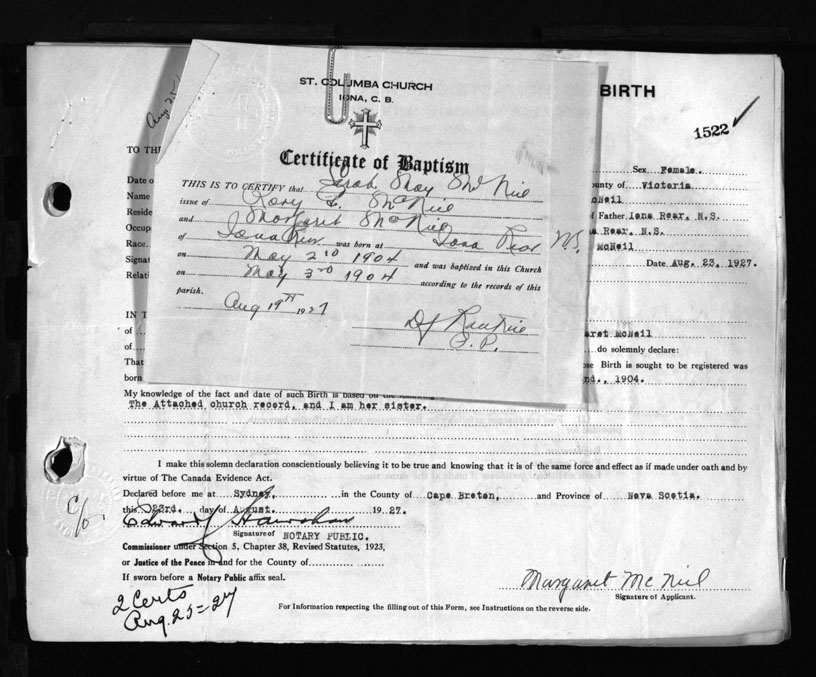 ST. COLUMBA CHURCH
IONA, C. B.
Certificate of Baptism
THIS IS TO CERTIFY that Sarah May McNeil
issue of Rory McNeil
and Margaret McNeil
of Iona Rear was born at Iona Rear N.S.
on May 2nd 1904 and was baptized in this Church
on May 3rd 1904 according to the records of this
parish.
Aug 19th 1927
P.P.
BIRTH
1522
Aug 25
TO TH
Date o
Sex Female.
Name
ounty of Victoria
Reside
cNeil
Occup
f Father Iona Rear, N.S.
Race
a Rear, N.S.
Signat
McNeil
Relati
Date Aug. 23, 1927.
IN T
of
aret McNeil
of
do solemnly declare:
That
ose Birth is sought to be registered was
born
nd., 1904.
My knowledge of the fact and date of such Birth is based on the following
The Attached church record, and I am her sister.
I make this solemn declaration conscientiously believing it to be true and knowing that it is of the same force and effect as if made under oath and by
virtue of The Canada Evidence Act.
Declared before me at Sydney, in the County of Cape Breton, and Province of Nova Scotia.
this 23rd. day of August. 1927.
Edward J
Signature of NOTARY PUBLIC.
Commissioner under Section 5, Chapter 38, Revised Statutes, 1923,
or Justice of the Peace in and for the County of
If sworn before a Notary Public affix seal.
Margaret McNeil
Signature of Applicant.
2 Certs
Aug. 25-27
For Information respecting the filling out of this Form, see Instructions on the reverse side.